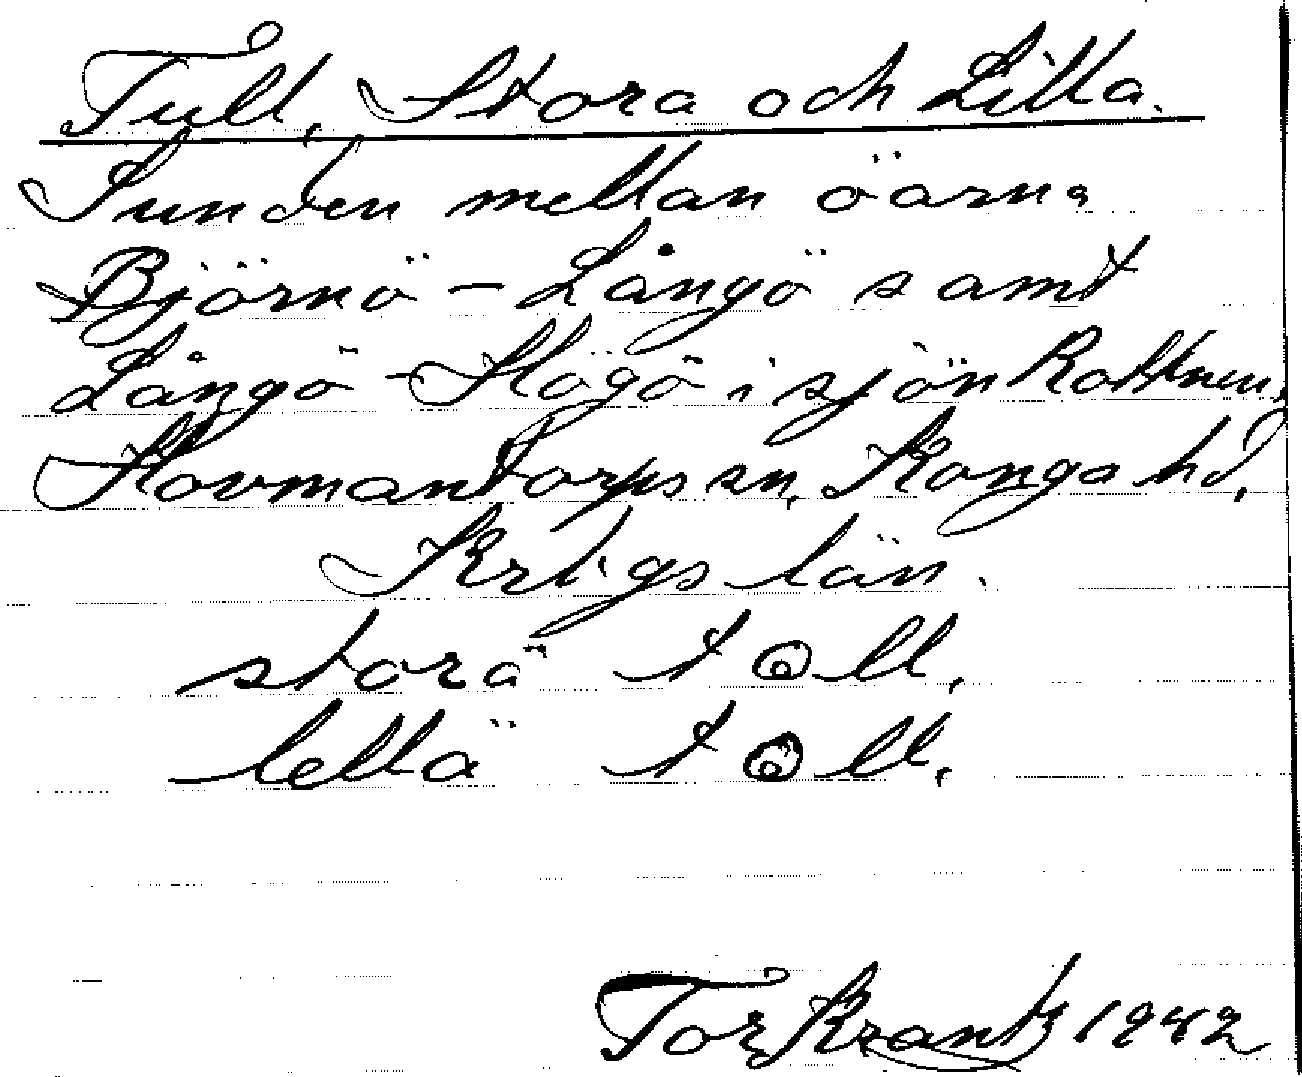 Tull, Stora och Lilla.
Sunden mellan öarna
Björnö - Långö samt
Långö - Högö i sjön Rottnen,
Hovmantorps sn, Konga hd,
Krbgs län.
storä tåll,
lellä tåll,
Tor Krantz 1942